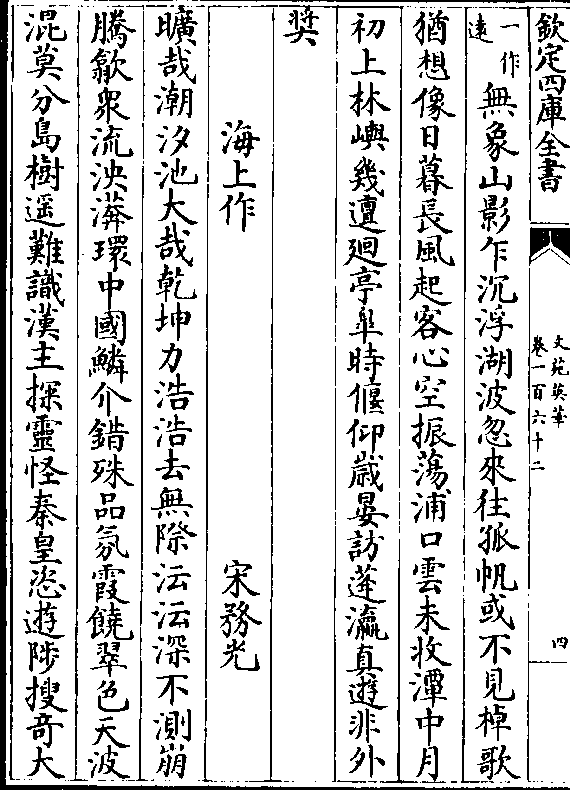 欽定四庫全書
文苑英華
卷一百六十二
四
一作
遠
無象山影乍沉浮湖波忽來往孤帆或不見棹歌
猶想像日暮長風起客心空振蕩浦口雲未收潭中月
初上林嶼幾邅廻亭皐時偃仰歳晏訪蓬瀛真遊非外
奬
海上作
宋務光
曠哉潮汐池大哉乾坤力浩浩去無際沄沄深不測崩
騰歙衆流泱漭環中國鱗介錯殊品氛霞饒翠色天波
混莫分島樹遥難識漢主探靈怪秦皇恣遊陟搜竒大